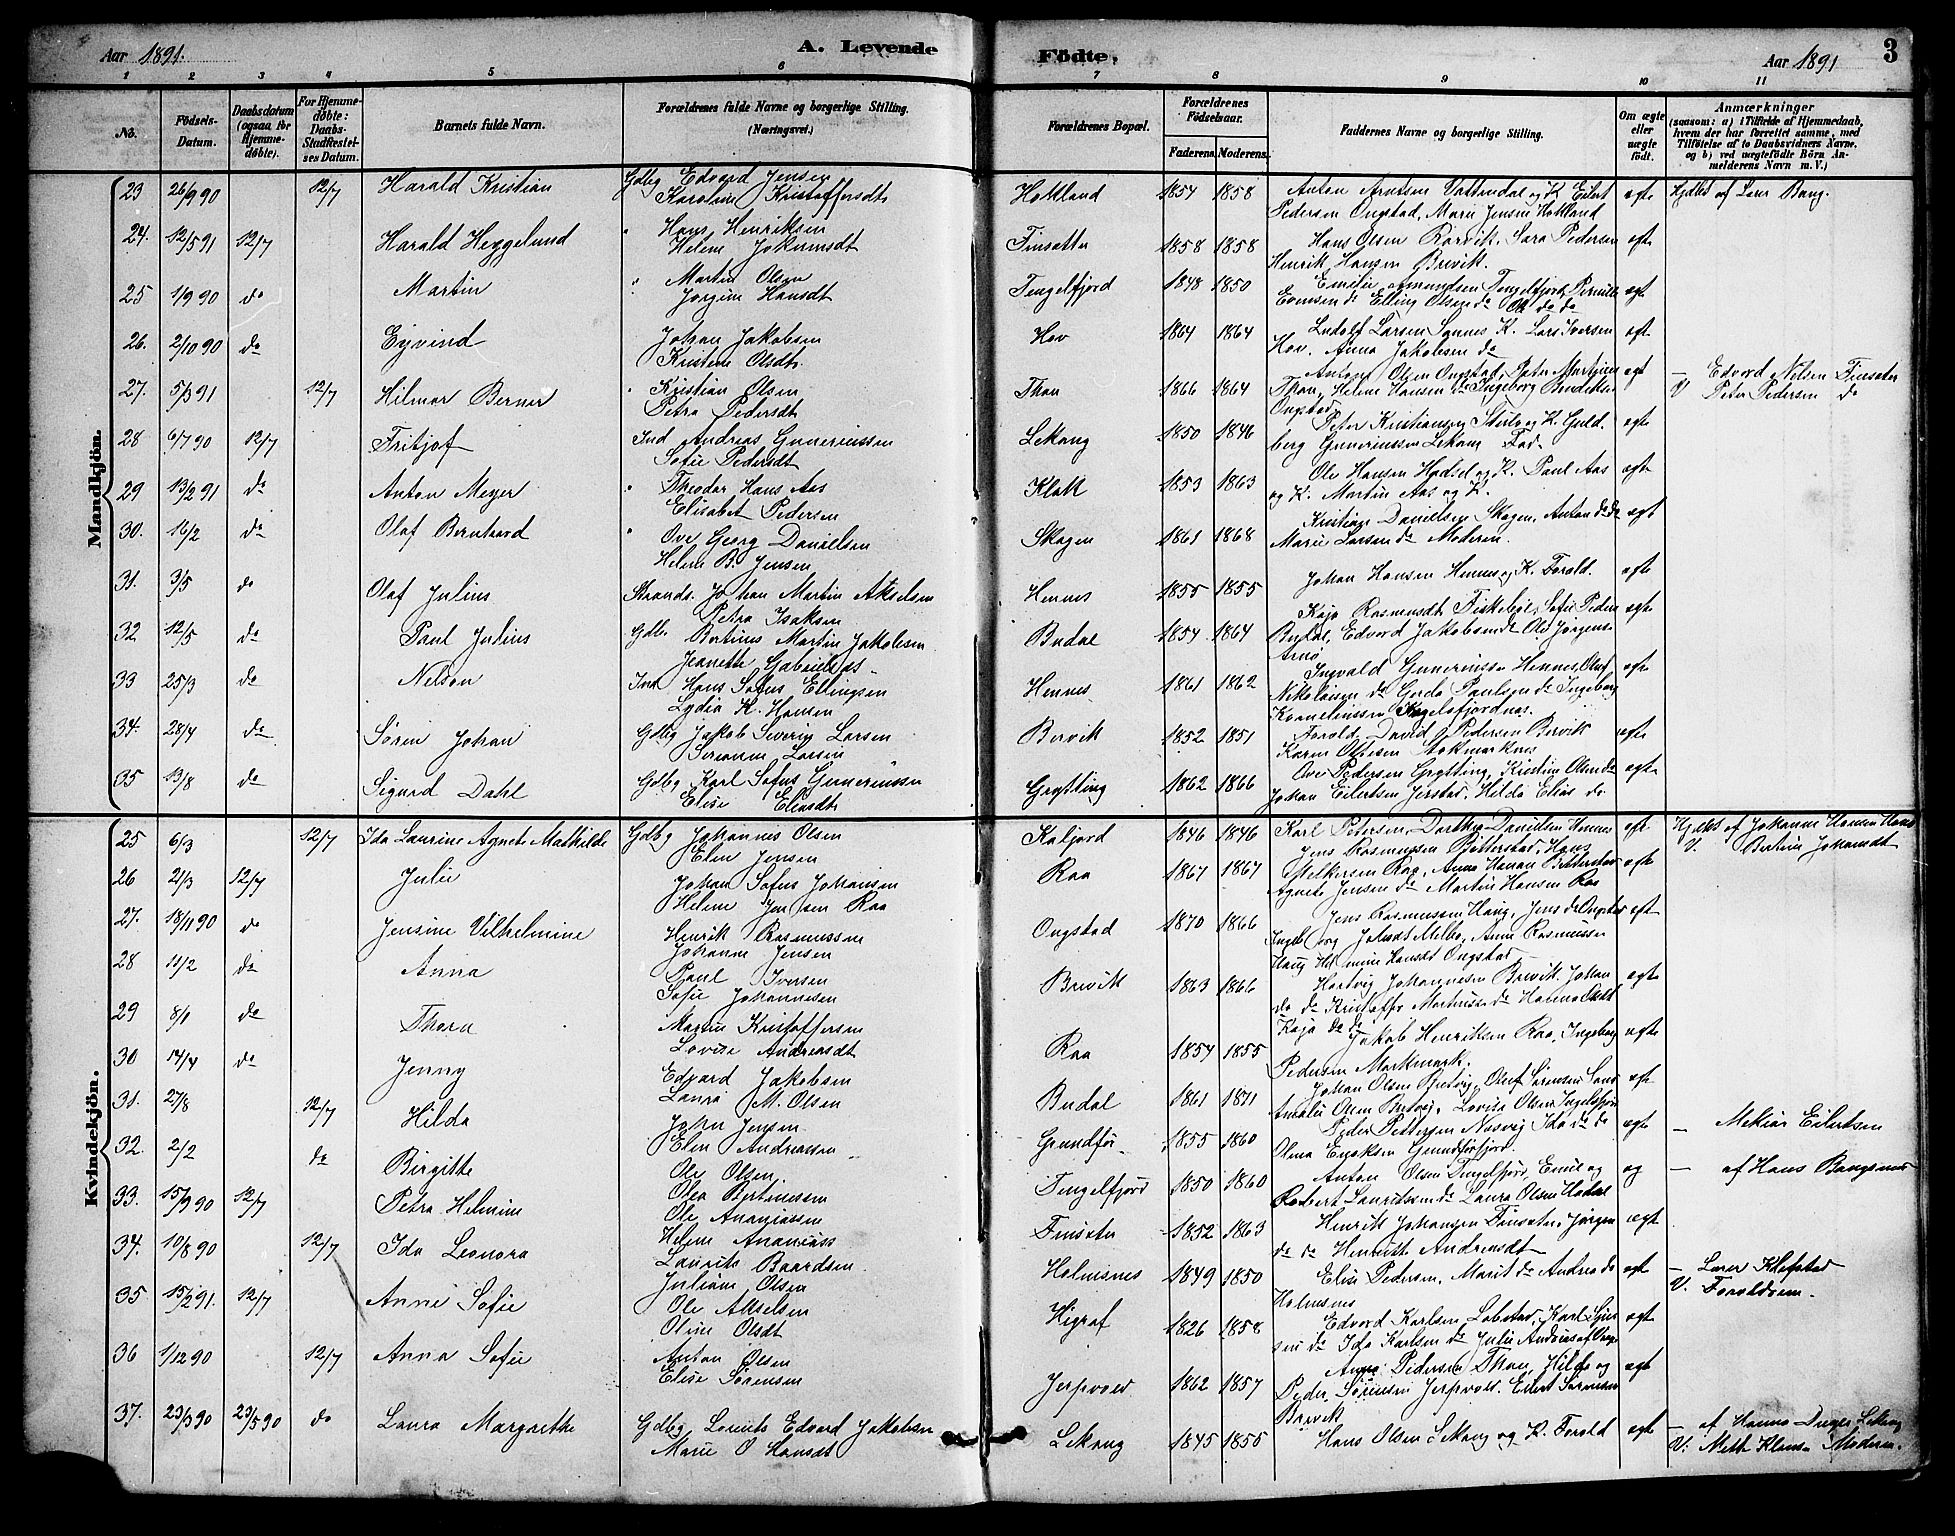 Aar 1891. A. Levende Födte. Aar 1891 3
1 2 3 4 5 6 7 8 9 10 11
No. Födsels-Datum. Daabsdatum (ogsaa for Hjemme-döbte). For Hjemme-döbte: Daabs-Stadfæstel-ses Datum. Barnets fulde Navn. Forældrenes fulde Navne og borgerlige Stilling. (Næringsvei.) Forældrenes Bopæl. Forældrenes Födselsaar. Faderens. Moderens. Faddernes Navne og borgerlige Stilling. Om ægte eller uægte födt. Anmærkninger (saasom: a) i Tilfælde af Hjemmedaab, hvem der har forrettet samme, med Tilföielse af to Daabsvidners Navne, og b) ved uægtefödte Börn An-melderens Navn m. V.)
Mandkjön.
23 26/9 90 12/7 Harald Kristian Gdbg Edvard Jensen Hokland 1854 1858 Anton Arntsen Vottendal og K. Eilert ægte Hjdbt af Lærer Bang.
Karoline Kristoffersdt Pedersen Ongstad, Marie Jensen Hokland
24. 12/5 91 12/7 Harald Heggelund " Hans Henriksen Finsæter 1858 1858 Hans Olsen Rørvik, Sara Pedersen ægte
Helene Johannesdt Henrik Hansen Brevik.
25 1/9 90 do Martin " Martin Olsen Tengelfjord 1848 1850 Emilie Amundsen Tengelfjord, Pernille ægte
Jorgine Hansdt Evensen do Elling Olsen do
26. 2/10 90 do Eyvind Johan Jakobsen Hov 1864 1864 Ludolf Larsen Sannes K. Lars Iversen ægt
Kristine Olsdt. Hov. Anna Jakobsen do
27. 5/3 91 12/7 Hilmar Berner " Kristian Olsen Thon 1866 1864 Antone Olsen Ongstad, Peter Martinsen ægt — Edvard Nilsen Finsæter
Petra Pedersdt Thon, Helene Hansen do Ingeborg Benediktsen Ongstad V Peter Pedersen do
28 6/7 90 12/7 Fritjof Ind Andreas Guneriussen Lekang 1850 1846 Peter Kristiansen og K. Guld- ægte
Sofie Pedersdt berg Guneriussen Lekang Fad.
29 13/2 91 do Anton Meyer " Theodor Hans Aas Klakk 1853 1863 Ole Hansen Hadsel og K. Paul Aas ægte
Elisabet Pedersen og K. Martin Aas og K.
30. 16/2 do Olaf Bernhard " Ove Georg Danielsen Skagen 1861 1868 Kristian Danielsen Skagen, Anton do do ægt
Helene B. Jensen Marie Larsen do Moderen.
31. 3/5 do Olaf Julius Strands. Johan Martin Akselsen Hennes 1855 1855 Johan Hansen Hennes og K. Forald. ægte
Petra Isaksen
32 12/5 do Paul Julius Gdbr. Bertinus Martin Jakobsen Budal 1854 1864 Kaja Rasmusdt Fiskebøl, Sofie Peder ægte
Jeanette Gabrielsdt Budal, Edvard Jakobsen do Ole Jørgens. Arnø
33 25/3 do Nelson Ind Hans Sofus Ellingsen Hennes 1861 1862 Ingvald Gunerius Hennes, Oluf ægte
Lydia K. Hansen Nikolaisen do Gerda Paulsen do Ingeborg Korneliussen
34. 28/4 do Søren Johan Gdbg Jakob Severin Larsen Brevik 1852 1851 Forald. David Pedersen Brevik ægte
Berianne Larsen Karen Ottesen Stokmarknes
35 13/8 do Sigurd Dahl Gdbg Karl Sofus Gunneriussen Grytting 1862 1866 Ove Pedersen Grytting, Kristine Olsen do ægte
Elise Eliasdt Johan Eilertsen Jerstad, Hilda Elias do
Kvindekjön.
25 6/3 12/7 Ida Laurine Agnete Mathilde Gdbg Johannes Olsen Kaljord 1846 1846 Karl Petersen, Dorthea Danielsen Hennes ægte Hjdbt af Johanne Hansen
Elen Jensen V. Bertine Johansdt
26 21/3 12/7 Julie Johan Sofus Johansen Raa 1867 1867 Jens Rasmussen Bitterstad, Hans ægte
Helene Jensen Raa Mikkelsen Raa, Anna Hanan Bitterstad Agnete Jensen do Martin Hansen Raa
27. 18/11 90 do Jensine Vilhelmine Henrik Rasmussen Ongstad 1870 1866 Jens Rasmussen Haug, Jens do Ongstad ægt
Johanne Jensen Ingeborg Johnsdt Melbo, Anne Rasmussen Haug Helmine Hansdt Ongstad
28 11/2 do Anna Paul Iversen Brevik 1863 1866 Hartvig Johannesen Brevik, Johan ægte
Sofie Johannesen do do Kristoffer Martinussen do Hanna Olsdt Kaja do do
29 8/1 do Thora Martin Kristoffersen Raa 1854 1855 Jakob Henriksen Raa, Ingeborg ægte
Lovise Andreasdt Pedersen Markmark.
30 14/4 do Jenny Edvard Jakobsen Budal 1861 1871 Johan Olsen Brevig, Oluf Sørensen ægt
Laura M. Olsen Amalie Olsen Brevig, Lovisa Olsen
31. 27/8 12/7 Hilda John Jensen Grundfør 1855 1860 Peder Pettersen Nesvig Ida do do ægte — Mekior Eilertsen
Elen Andreassen Olma Eriksen Grundforfjord.
32. 2/2 do Birgitte Ole Olsen Tengelfjord 1850 1860 Anton Olsen Tengelfjord, Emil og og — af Hans Bangsmo
Olea Bertinussen Robert Lauritssen do Laura Olsen Hadsel
33. 15/9 90 12/7 Petra Helmine Ole Ananiassen Finsæter 1852 1863 Henrik Johansen Finsæter, Jørgen ægt
Helene Ananiass do do Henriette Andreasdt
34. 10/8 90 12/7 Ida Leonora Laurits Baardsen Holmsnes 1849 1850 Elise Pedersen, Marit do Andrea do ægt — Lærer Klepstad
Juliane Olsen Holmsnes V. Foraldrene.
35 15/2 91. 12/7 Anne Sofie Ole Akselsen Higraf 1826 1858 Edvard Karlsen Lobstad, Karl ægt
Oline Olsdt sen do Ida Karlsen do Julie Andreas
36 1/12 90 12/7 Anna Sofie Anton Olsen Jerpvold 1862 1857 Anna Pedersen Thon, Hilda og ægt
Elise Sørensen Peder Sørensen Jerpvold. Eilert Sørensen Brevik
37. 23/3 90 23/5 90 do Laura Margrethe Gdbg Lorents Edvard Jakobsen Lekang 1845 1855 Hans Olsen Lekang og K. Forald ægt — af Hanna Lekang
Marie O Hansdt V. Meth Klausen Moderen.